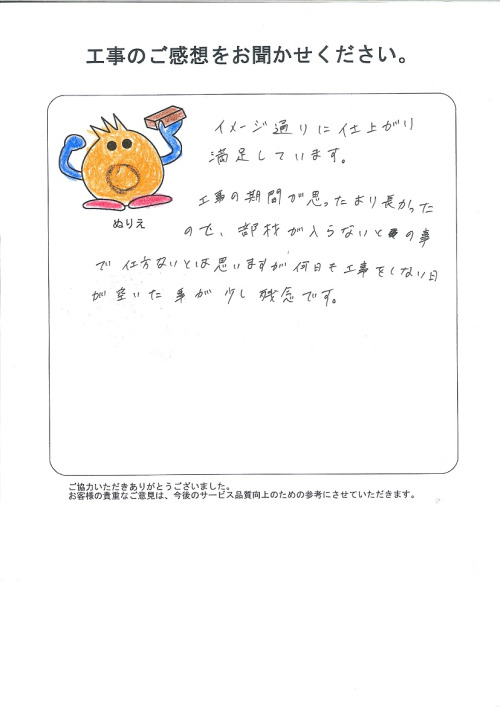 工事のご感想をお聞かせください。
イメージ通りに仕上がり
満足しています。
工事の期間が思ったより長かった
ので、部材が入らないとの事
で仕方ないとは思いますが何日も工事をしない日
が空いた事が少し残念です。
ぬりえ
ご協力いただきありがとうございました。
お客様の貴重なご意見は、今後のサービス品質向上のための参考にさせていただきます。